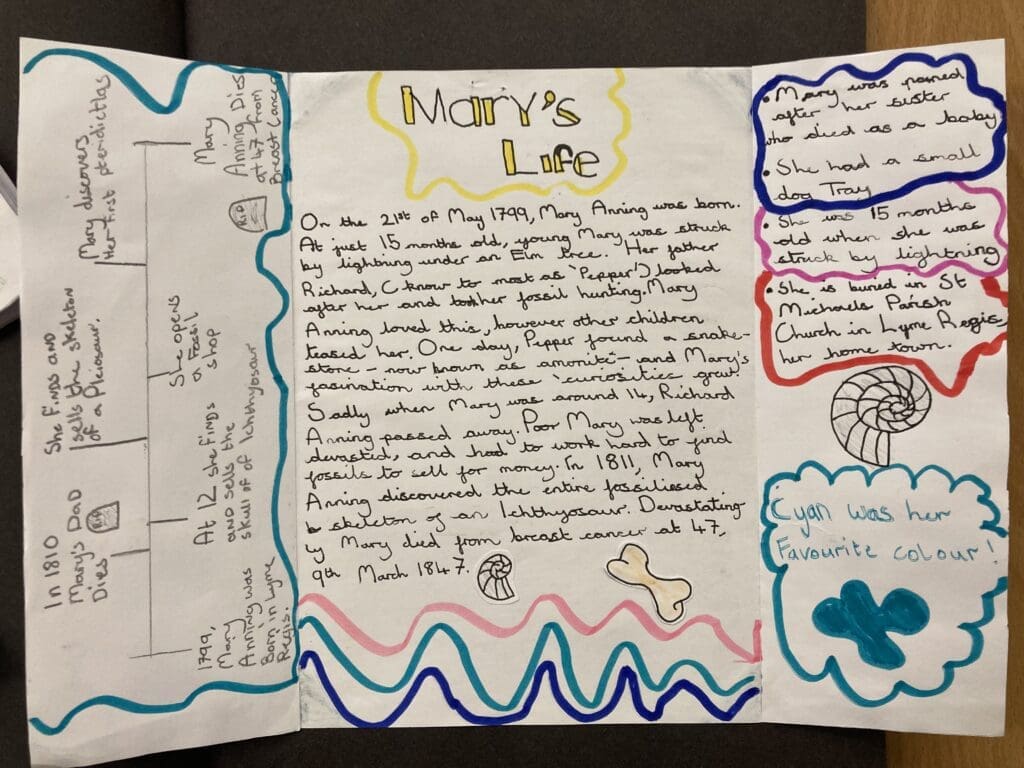 In 1810
Mary's Dad
Dies
RIP
She finds and
sells the skeleton
of a Pleiosaur.
Mary discovers
Her first pteridictlas
1799,
Mary
Anning was
Born in Lyme
Regis.
At 12 she finds
and sells the
skull of of Ichthyosaur
She opens
a Fossil
shop
RIP
Mary
Anning Dies
at 47 from
Breast Cancer
Mary's
Life
On the 21st of May 1799, Mary Anning was born.
At just 15 months old, young Mary was struck
by lightning under an Elm tree. Her father
Richard, (know to most as 'Pepper') looked
after her and took her fossil hunting. Mary
Anning loved this, however other children
teased her. One day, Pepper found a snake-
stone - now known as amonite - and Mary's
fascination with these 'curiosities' grew.
Sadly when Mary was around 14, Richard
Anning passed away. Poor Mary was left
devasted, and had to work hard to find
fossils to sell for money. In 1811, Mary
Anning discovered the entire fossilised
skeleton of an Ichthyosaur. Devastating-
ly Mary died from breast cancer at 47,
9th March 1847.
• Mary was named
after her sister
who died as a baby
• She had a small
dog Tray
• She was 15 months
old when she was
struck by lightning
• She is buried in St
Michaels Parish
Church in Lyme Regis,
her home town.
Cyan was her
Favourite colour!